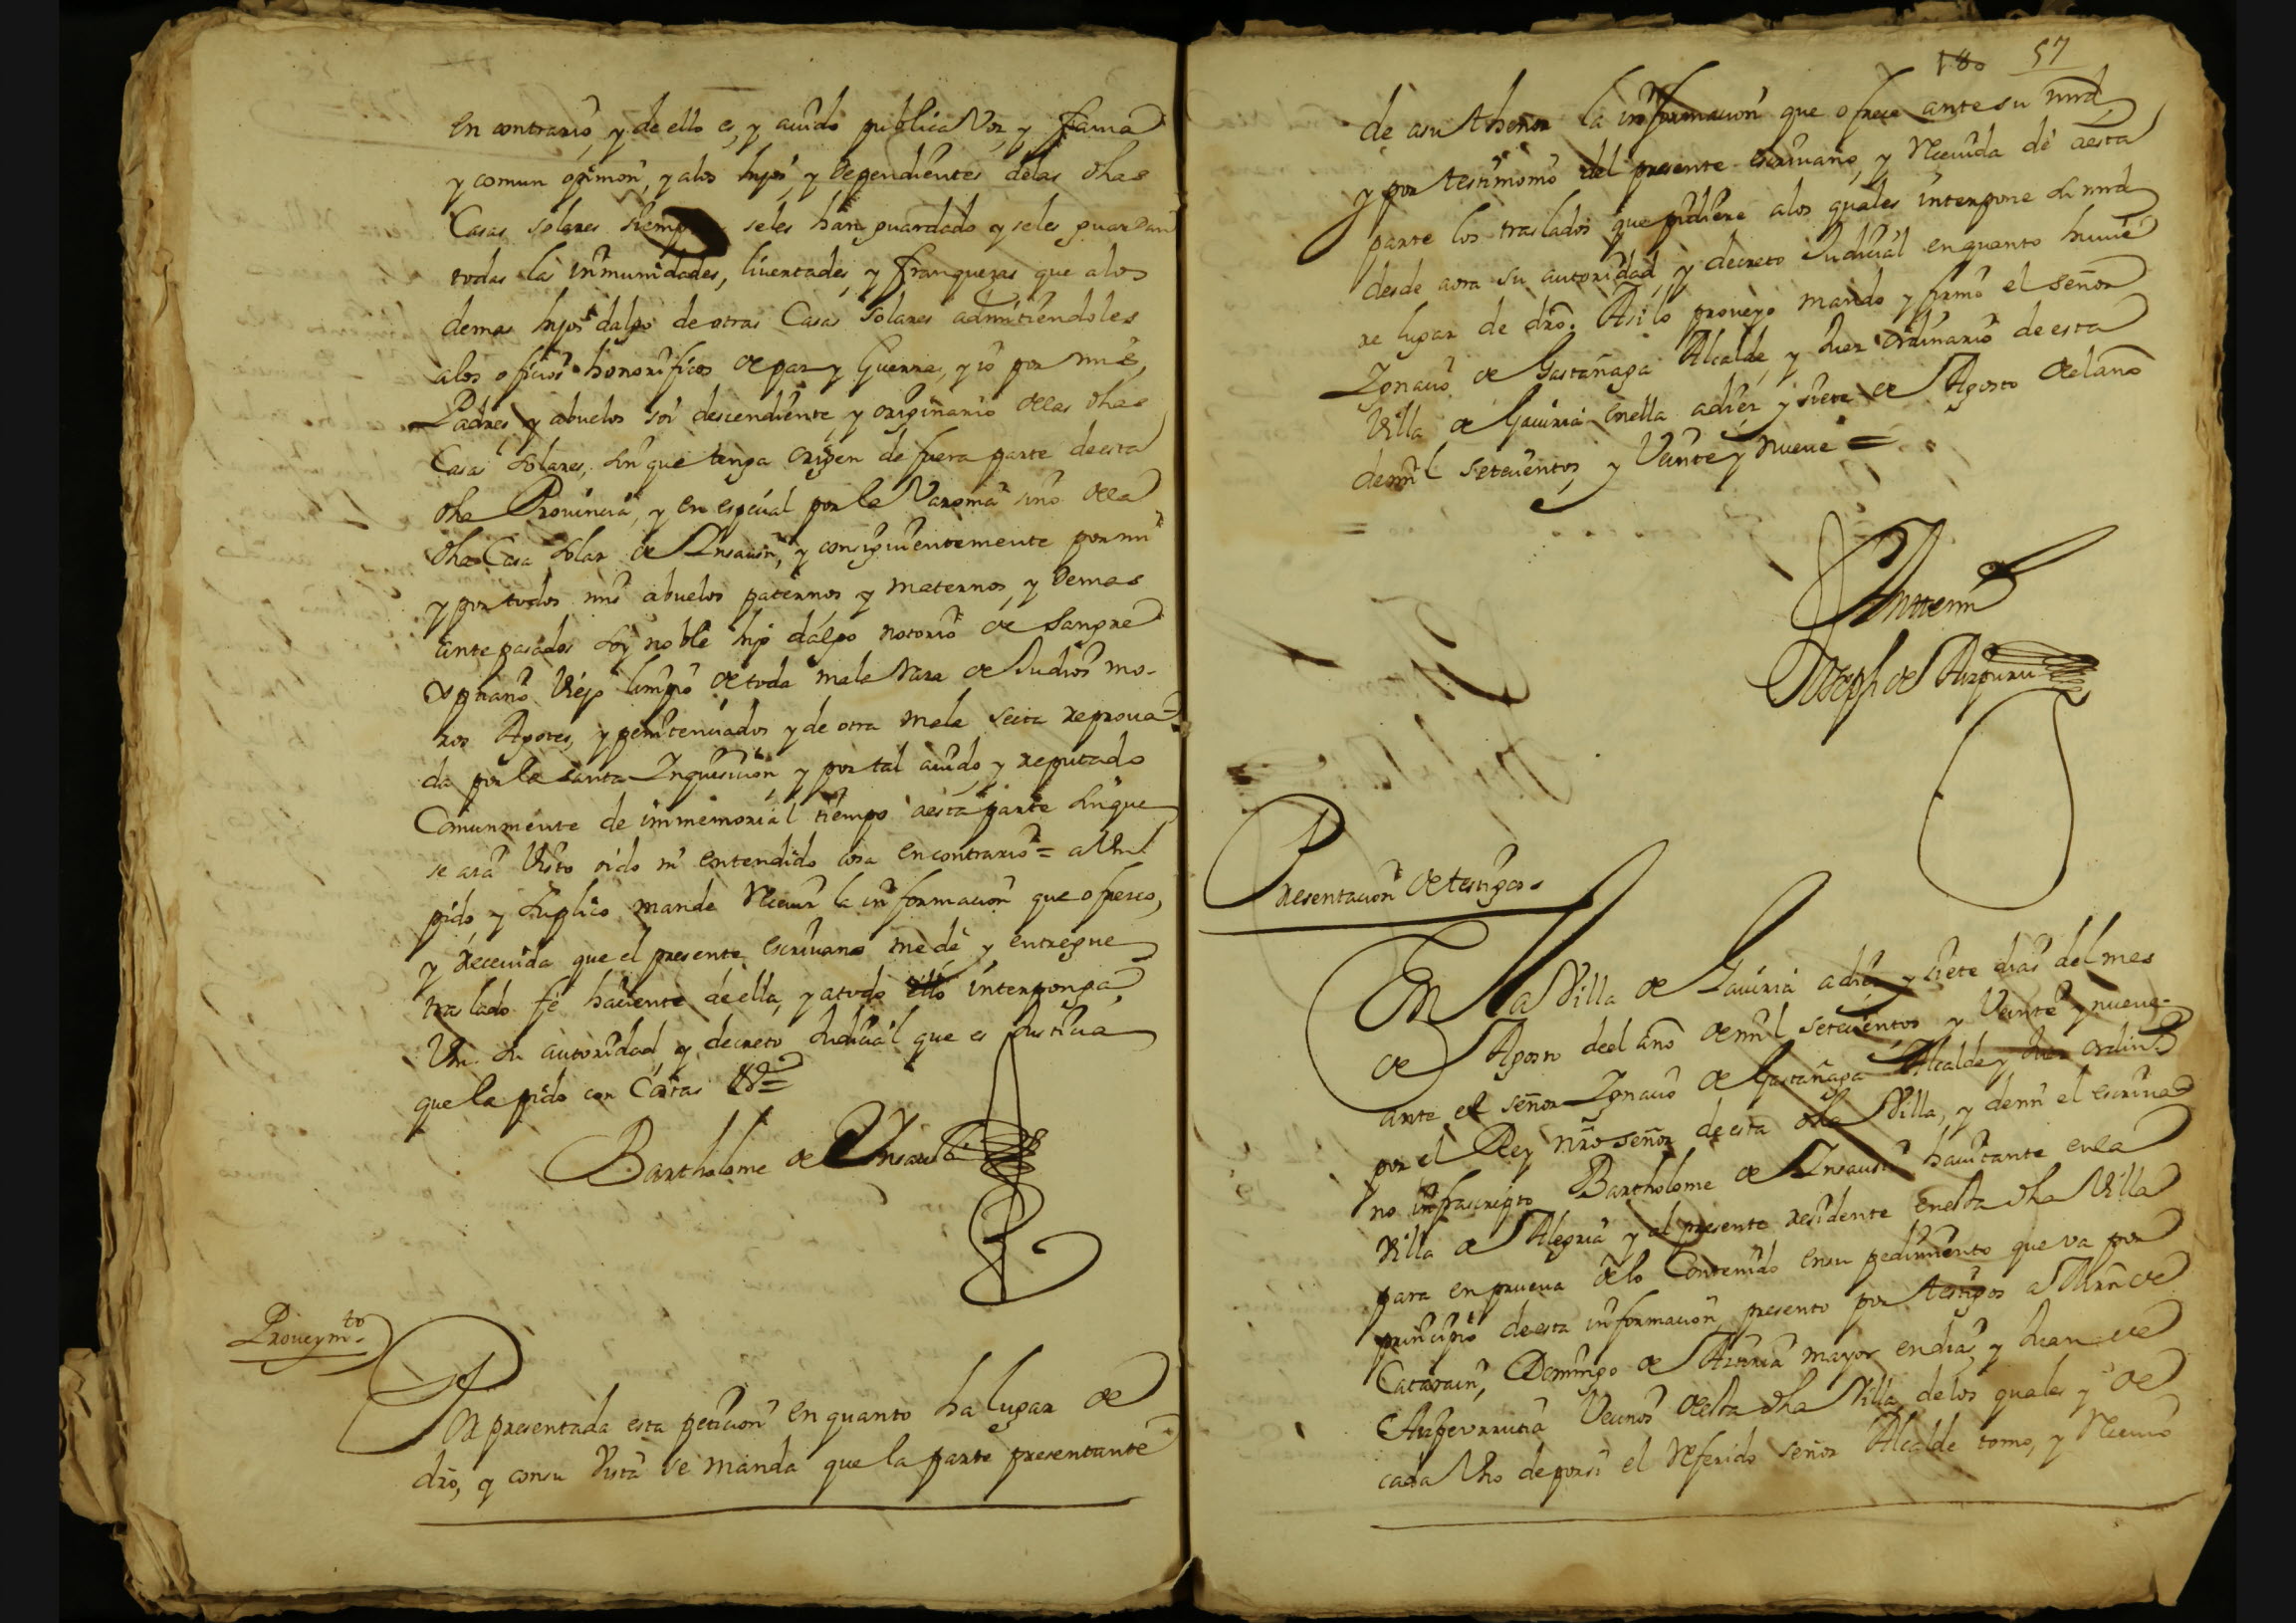 en contrario, y de ello es, y auido publica Voz, y fama
y comun opinion, y alos hijos y Dependientes delas dhas
Casas solares siempre seles han guardado y seles guardan
todas las inmunidades, liuertades, y franquezas que alos
demas hijos dalgo de otras Casas solares admitiendoles
alos oficios honorificos de paz y Guerra, y io por mis
Padres y abuelos soi descendiente y originario delas dhas
Casas solares, sin que tenga origen de fuera parte de esta
dha Prouincia, y en especial por la Varonia sino dela
dha Casa solar de Insausti, y consiguientemente por mi
y por todos mis abuelos paternos y maternos, y demas
antepasados soy noble hijo dalgo notorio de sangre
xptiano Viejo limpio de toda mala Raza de Judios mo-
ros Agotes, y penitenciados y de otra mala secta reproua-
da por la santa Inquisicion, y por tal auido y reputado
Comunmente de immemorial tiempo aesta parte sin que
se aia Visto oido ni entendido cosa en contrario = a Vmd
pido y suplico mande Receuir la informacion que ofresco,
y Receuida que el presente escriuano me dè y entregue
traslado fè haciente de ella, y atodo ello interponga
Vm. su autoridad, y decreto Judicial que es Justicia
que la pido con Costas &ª =
Bartholome de Insausti
Proueymto.
Por presentada esta peticion en quanto ha lugar de
dro, y con su Vista se manda que la parte presentante
180 57
de asu thenor la informacion que ofrece ante su mrd
y por testimonio del presente escriuano, y Receuida dè aesta
parte los traslados que pidiere alos quales interpone su mrd
desde aora su autoridad, y decreto Judicial en quanto huuie
re lugar de dro. Asi lo proueyo mando y firmò el señor
Ignacio de Gastañaga Alcalde, y Juez ordinario de esta
Villa de Gauiria en ella adiez y siete de Agosto del año
de mil setecientos, y Veinte y nueue =
Ante mi
Joseph de Aizpuru
Presentacion de testigos
En la Villa de Gauiria adiez y siete dias del mes
de Agosto deel año de mil setecientos y Veinte y nueue
ante el señor Ignacio de Gastañaga Alcalde y Juez ordinº
por el Rey nro señor de esta dha Villa, y de mi el escriua
no infrascripto Bartholome de Insausti hauitante en la
Villa de Alegria y al presente residente en esta dha Villa
para en prueua delo Contenido en su pedimiento que va por
principio de esta informacion presento por testigos a Mrn de
Catarain, Domingo de Aztiria mayor en dias, y Juan de
Aizpeurrutia Vecinos desta dha Villa, delos quales y de
cada Vno de por si el Referido señor Alcalde tomo, y Receuio